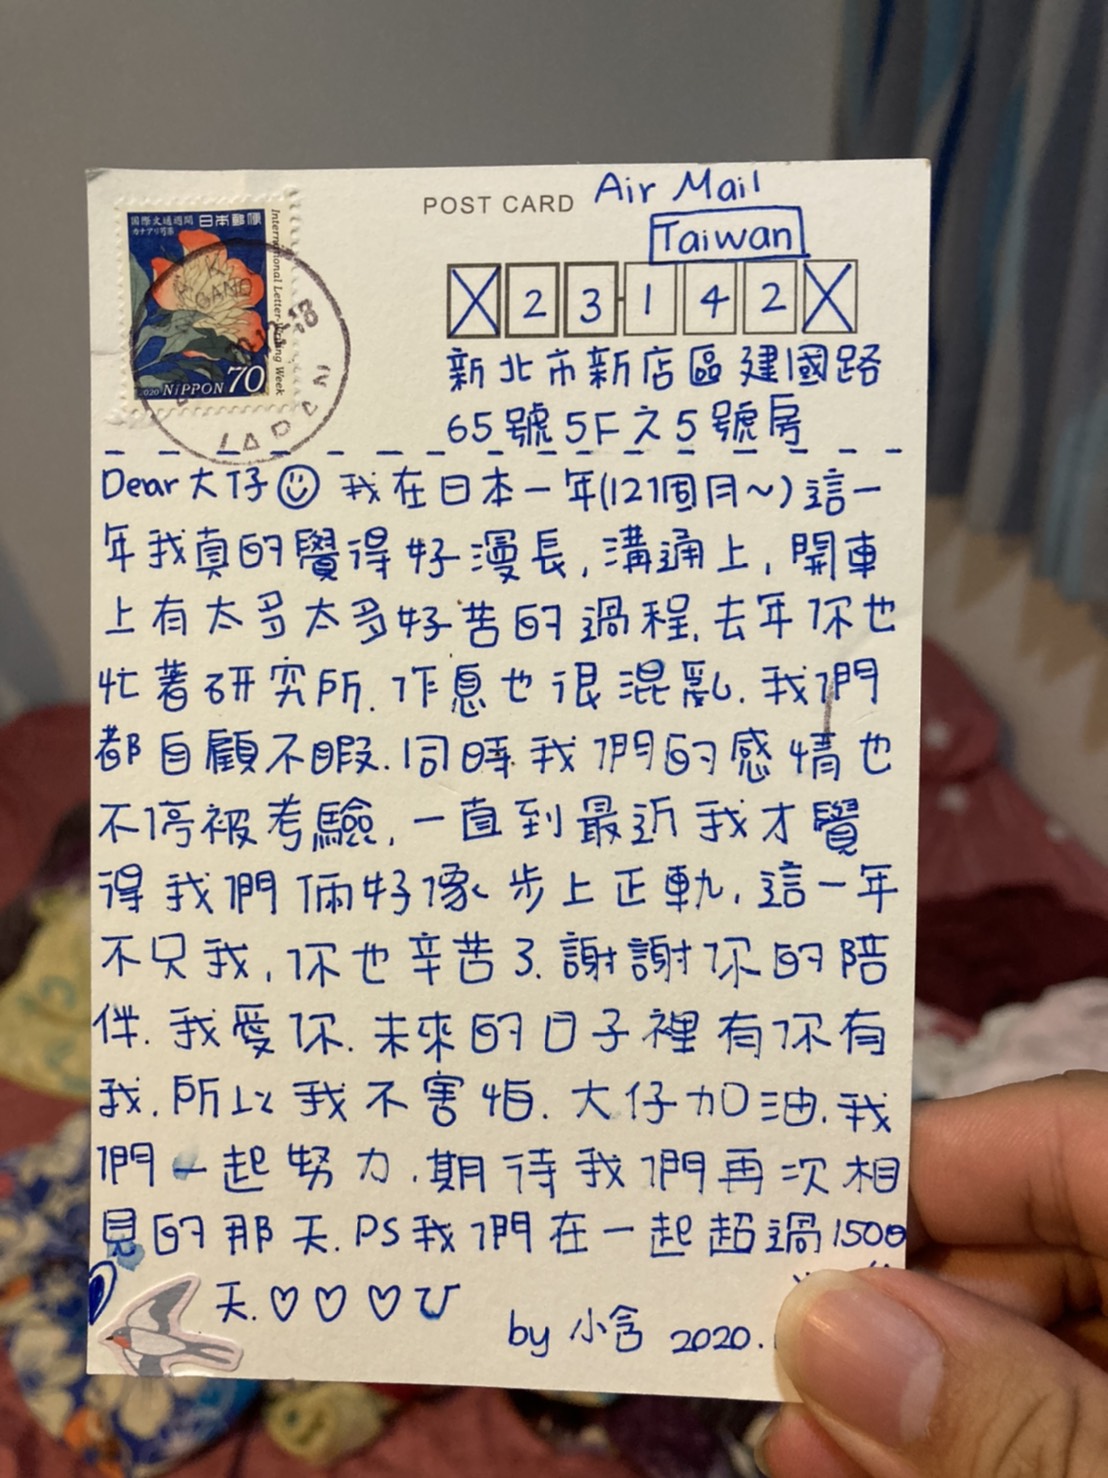 POST CARD
Air Mail
Taiwan
23-142
新北市新店區建國路
65號5F之5號房
国際文通週間 日本郵便
International Letter-Writing Week
NIPPON 70
Dear 大仔☺ 我在日本一年(12個月~)這一
年我真的覺得好漫長,溝通上,開車
上有太多太多好苦的過程.去年你也
忙著研究所.作息也很混亂.我們
都自顧不暇.同時我們的感情也
不停被考驗,一直到最近我才覺
得我們倆好像步上正軌.這一年
不只我,你也辛苦了.謝謝你的陪
伴.我愛你.未來的日子裡有你有
我.所以我不害怕.大仔加油.我
們一起努力.期待我們再次相
見的那天.PS我們在一起超過1500
天.♡♡♡
by 小含 2020.